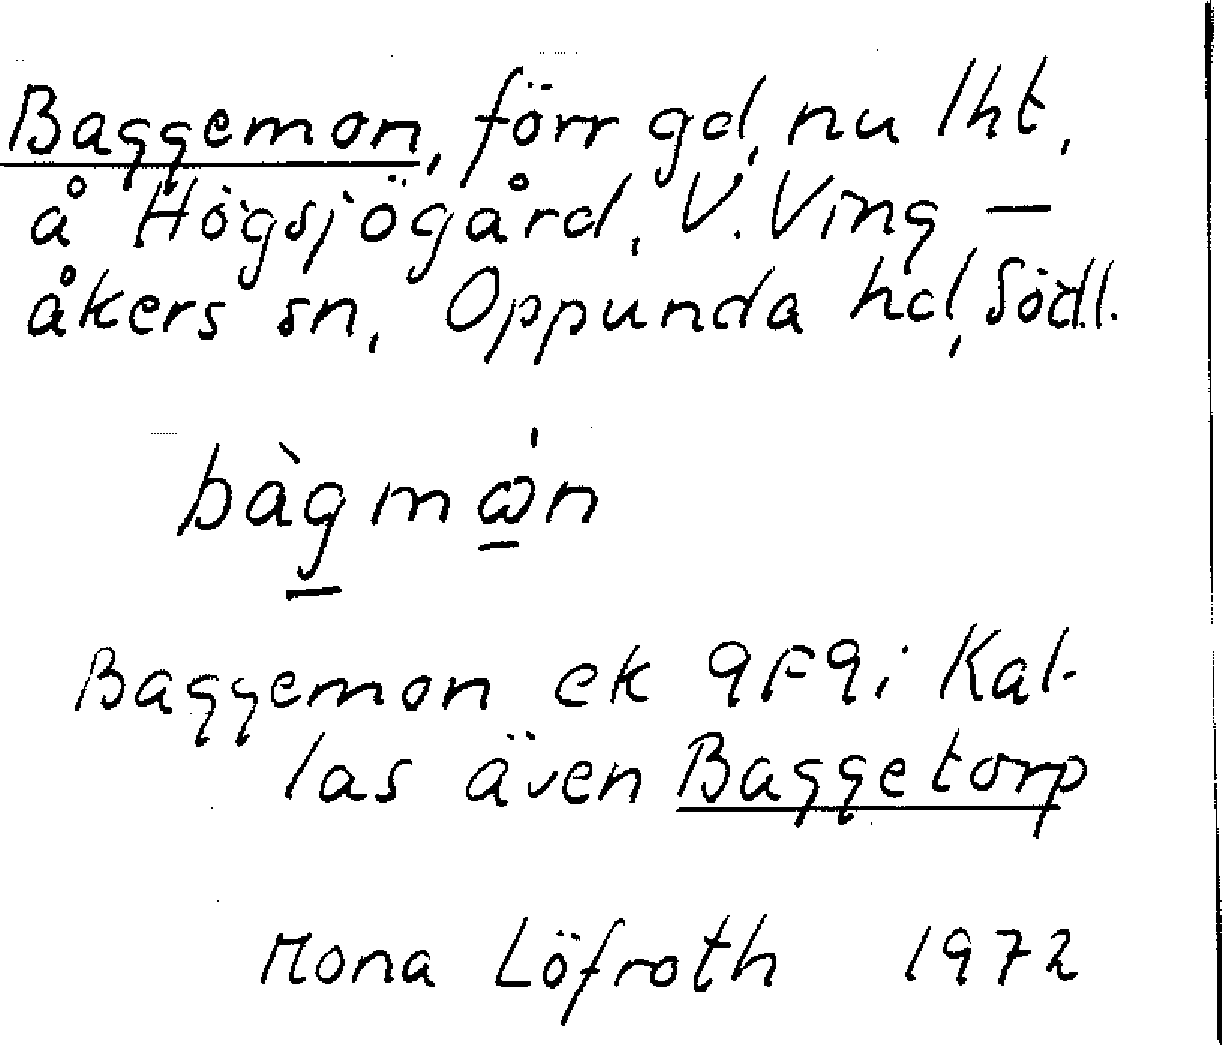 Baggemon, förr gd, nu lht,
å Högsjögård, V. Ving-
åkers sn, Oppunda hd, Södl.
bàgmώ̣n
Baggemon ek 9F9i Kal-
las även Baggetorp
Mona Löfroth 1972